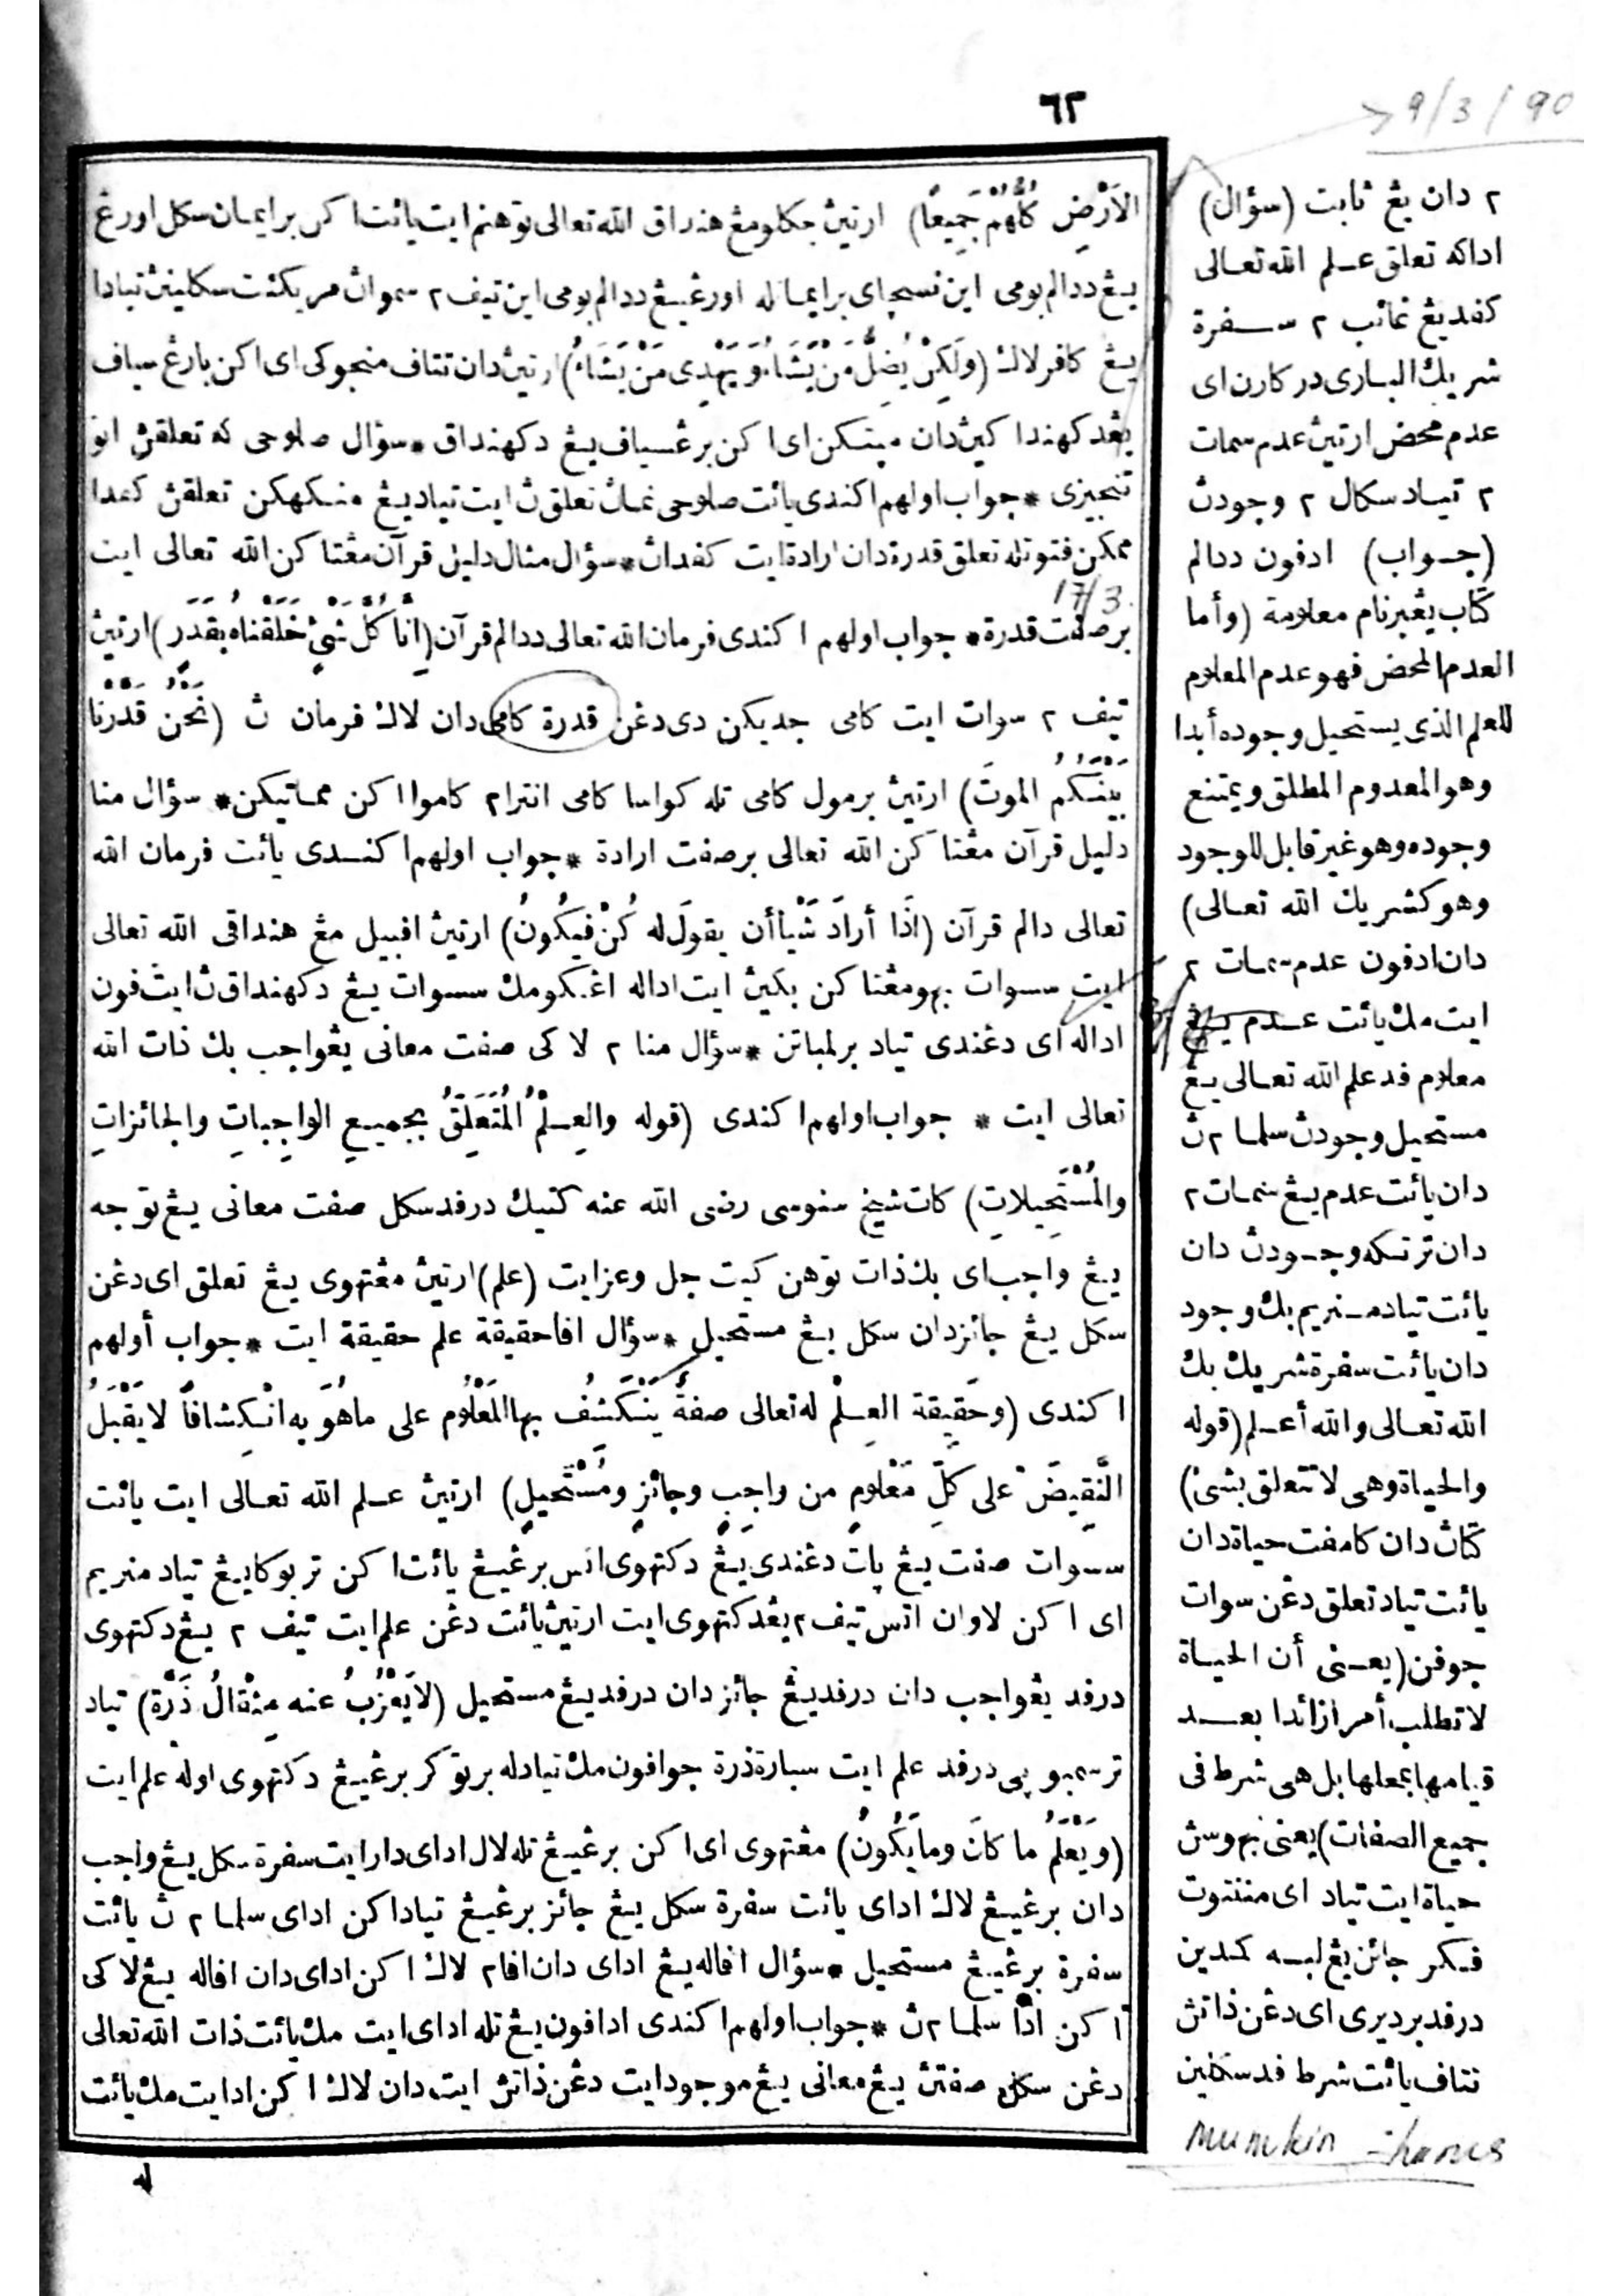 ٦٢
9/3/90
الاَرْضِ كُلُّهُمْ جَمِيعًا) ارتيڽ جكلو مڠهنداق الله تعالى توهنم ايت يائت اكن برايمان سكل اورڠ
يڠ ددالم بومى اين نسچاى برايمانله اورڠ يڠ ددالم بومى اين تيف ٢ سموان مريكئت سكلينڽ تيادا
يڠ كافر لاݢ (وَلَكِنْ يُضِلُّ مَنْ يَشَاءُ وَيَهْدِى مَنْ يَشَاءُ) ارتيڽ دان تتاف منجوكى اى اكن بارڠ سياف
يڠدكهنداكيڽ دان ميتكن اى اكن برڠسياف يڠ دكهنداق * سؤال صلوحى كه تعلقڽ اتو
تنجيزى * جواب اولهم اكندى يائت صلوحى نماڽ تعلق ڽ ايت تياد يڠ منكهكن تعلقڽ كفدا
ممكن فتوتله تعلق قدرة دان ارادة ايت كفداڽ * سؤال منال دليل قرآن مڠتاكن الله تعالى ايت
17/3
برصفت قدرة * جواب اولهم اكندى فرمان الله تعالى ددالم قرآن (اِنَّا كُلَّ شَىْءٍ خَلَقْنَاهُ بِقَدَرٍ) ارتيڽ
تيف ٢ سوات ايت كامى جديكن دى دڠن قدرة كامى دان لاݢ فرمان ڽ (نَحْنُ قَدَّرْنَا
بَيْنَكُمُ الموتَ) ارتيڽ برمول كامى تله كواسا كامى انترام كاموا اكن مماتيكن * سؤال منا
دليل قرآن مڠتاكن الله تعالى برصفت ارادة * جواب اولهم اكندى يائت فرمان الله
تعالى دالم قرآن (اذَا أرادَ شَيْأً أن يقولَ له كُنْ فَيَكُونُ) ارتيڽ افبيل مڠهنداقى الله تعالى
ايت سسوات بهو مڠتاكن بكيڽ ايت اداله اڠكو مك سسوات يڠ دكهنداق ڽ ايت فون
اداله اى دڠندى تياد برلمباتن * سؤال منا ٢ لاكى صفت معانى يڠواجب بݢ ذات الله
تعالى ايت * جواب اولهم اكندى (قوله والعِلْمُ المُتَعَلِّقُ بجميعِ الواجِباتِ والجائزاتِ
والمُسْتَحِيلاتِ) كات شيخ سنوسى رضى الله عنه كتيݢ درفد سكل صفت معانى يڠ توجه
يڠ واجب اى بݢ ذات توهن كيت جل وعز ايت (علم) ارتيڽ مڠتهوى يڠ تعلق اى دڠن
سكل يڠ جائز دان سكل يڠ مستحيل * سؤال افا حقيقة علم حقيقة ايت * جواب أولهم
اكندى (وحَقِيقة العِلْمْ له تعالى صفةٌ يَنْكَشُفُ بها المَعْلُوم على ما هُوَ به انْكِشافاً لا يَقْبَلُ
النَّقِيضَ على كُلِّ مَعْلومٍ من واجِبٍ وجائزٍ ومُسْتَحيلٍ) ارتيڽ علم الله تعالى ايت يائت
سسوات صفت يڠ ڽات دڠندى يڠ دكتهوى اتس برڠيڠ يائت اكن تربوكا يڠ تياد منريم
اى اكن لاوان اتس تيف ٢ يڠدكتهوى ايت ارتيڽ يائت دڠن علم ايت تيف ٢ يڠ دكتهوى
درفد يڠواجب دان درفد يڠ جائز دان درفد يڠ مستحيل (لا يَعْزُبُ عنه مِثْقالُ ذَرَّة) تياد
ترسمبوڽى درفد علم ايت سبارة ذرة جوافون مك تيادله برتوكر برڠيڠ دكتهوى اوله علم ايت
(ويَعْلَمُ ما كانَ وما يَكُونُ) مڠتهوى اى اكن برڠيڠ تله لال اداى دار ايت سفرة سكل يڠ واجب
دان برڠيڠ لاݢ اداى يائت سفرة سكل يڠ جائز برڠيڠ تيادا كن اداى سلما ٢ ڽ يائت
سفرة برڠيڠ مستحيل * سؤال افاله يڠ اداى دان افا ٢ لاݢ اكن اداى دان افاله يڠ لاكى
اكن ادا سلما ٢ ڽ * جواب اولهم اكندى ادافون يڠ تله اداى ايت مك يائت ذات الله تعالى
دڠن سكل صفتڽ يڠ معانى يڠ موجود ايت دڠن ذاتڽ ايت دان لاݢ اكن اد ايت مك يائت
٢ دان يڠ ثابت (سؤال)
اداكه تعلق علم الله تعالى
كفد يڠ غائب ٢ سفرة
شريك البارى در كارن اى
عدم محض ارتيڽ عدم سمات
٢ تياد سكال ٢ وجودڽ
(جواب) ادفون ددالم
كتاب يڠبرنام معلومة (وأما
العدم المحض فهو عدم المعلوم
للعلم الذى يستحيل وجوده أبدا
وهو المعدوم المطلق ويمتنع
وجوده وهو غير قابل للوجود
وهو كشريك الله تعالى)
دان ادفون عدم سمات ٢
ايت مك يائت عدم يڠ
معلوم فد علم الله تعالى يڠ
مستحيل وجودڽ سلما ٢ ڽ
دان يائت عدم يڠ سمات ٢
دان ترتݢه وجودڽ دان
يائت تياد منريم بݢ وجود
دان يائت سفرة شريك بݢ
الله تعالى والله أعلم (قوله
والحياة وهى لا تتعلق بشئ)
كتاڽ دان كامفت حياة دان
يائت تياد تعلق دڠن سوات
جوفن (يعنى أن الحياة
لا تطلب أمرا زائدا بعد
قيامها بمحلها بل هى شرط فى
جميع الصفات) يعنى بهوسڽ
حياة ايت تياد اى منتوت
فكر جائن يڠ لبه كمدين
درفد برديرى اى دڠن ذاتڽ
تتاف يائت شرط فد سكلين
mumkin harus
له